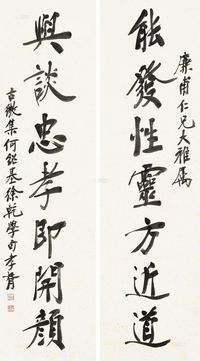 廉甫仁兄大雅屬
能發性靈方近道
與談忠孝即開顏
古微集何紹基徐乾學句孝胥